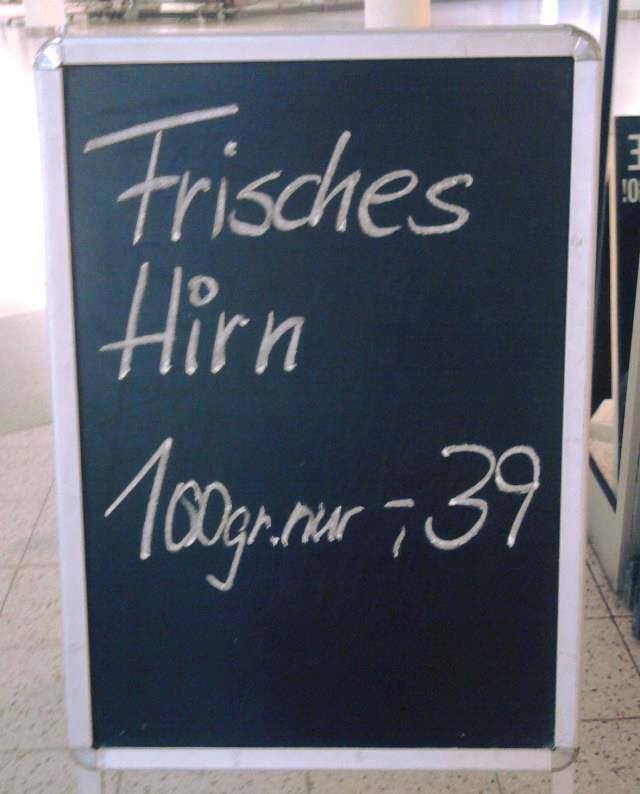 Frisches
Hirn
100gr. nur -,39